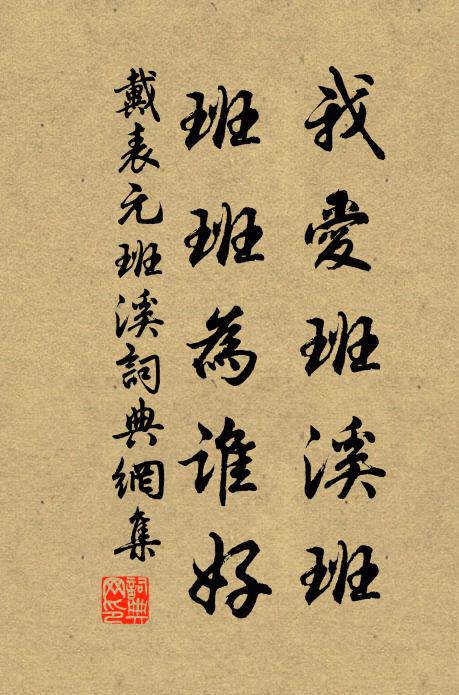 我愛班溪班
班班為誰好
戴表元班溪詞典網集
詞典網印